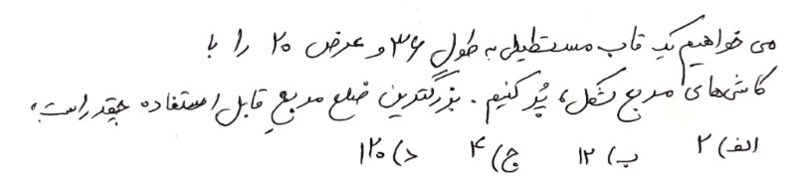 می خواهیم یک قاب مستطیل به طول ۳۶ و عرض ۲۰ را با
کاشی‌های مربع شکل، پُر کنیم. بزرگترین ضلع مربع قابل استفاده چقدر است؟
الف) ۲ ب) ۱۲ ج) ۴ د) ۱۲۰